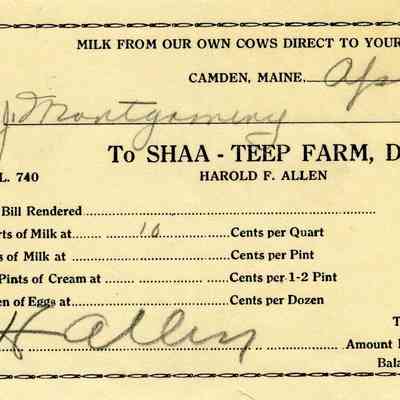 MILK FROM OUR OWN COWS DIRECT TO YOUR
CAMDEN, MAINE, Ap
J. Montgomery
To SHAA - TEEP FARM, D
L. 740 HAROLD F. ALLEN
Bill Rendered
rts of Milk at 10 Cents per Quart
s of Milk at Cents per Pint
Pints of Cream at Cents per 1-2 Pint
en of Eggs at Cents per Dozen
T
H Allen
Amount
Bala